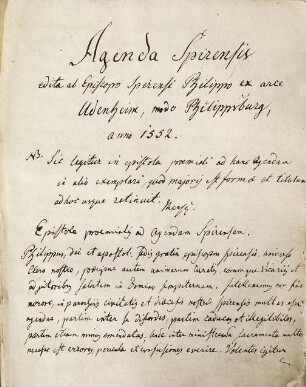 Agenda Spirensis
edita ab Episcopo Spirensi Philippo ex arce
Udenheim, modo Philippsburg,
anno 1552.
NB. Sic legitur in epistola proemiali ad hanc Agendam
in alio exemplari quod majoris est formae et titulum
adhuc usque retinuit.
Epistola proemialis ad Agendam Spirensem.
Philippus, dei et apostol. sedis gratia episcopus spirensis, universo
clero nostro, praecipue autem animarum curatis, eorumque vicariis et
adjutoribus salutem in Domino sempiternam. Intelleximus non sine
moerore, in parochiis civitatis et dioecesis nostrae spirensis multas esse
agendas, partim inter se discordes, partim caducas et illegibiles,
partim etiam minus emendatas, unde inter ministranda sacramenta multos
necesse est errores, pericula et confusiones evenire. Volentes igitur